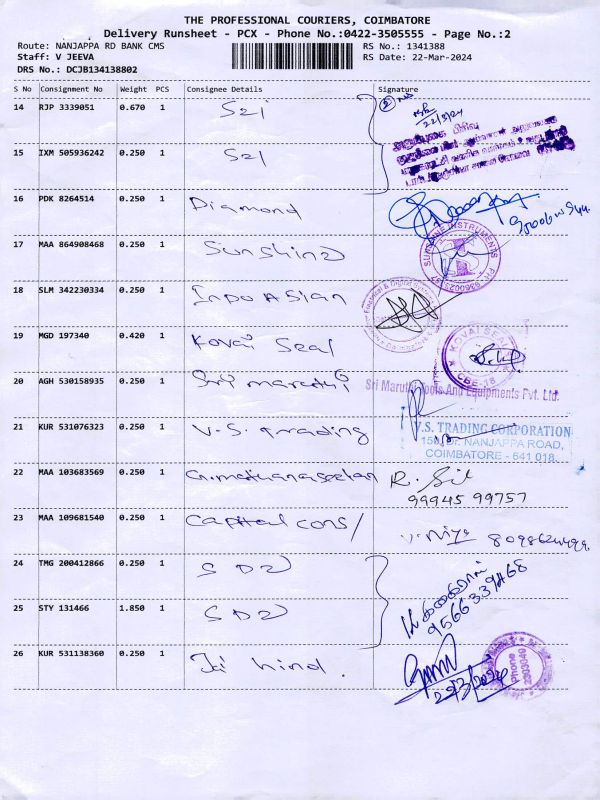 THE PROFESSIONAL COURIERS, COIMBATORE
Delivery Runsheet - PCX - Phone No.:0422-3505555 - Page No.:2
Route: NANJAPPA RD BANK CMS RS No.: 1341388
Staff: V JEEVA RS Date: 22-Mar-2024
DRS No.: DCJB134138802
S No Consignment No Weight PCS Consignee Details Signature
14 RJP 3339051 0.670 1
22/3/24
15 IXM 505936242 0.250 1
16 PDK 8264514 0.250 1 Diamond
17 MAA 864908468 0.250 1 Sunshine
SUNSHINE INSTRUMENTS
18 SLM 342230334 0.250 1 Indo Asian
19 MGD 197340 0.420 1 Kovai Seal
KOVAI SEAL
CBE-18
20 AGH 530158935 0.250 1 Sri maruthi
Sri Maruthi Tools And Equipments Pvt. Ltd.
21 KUR 531076323 0.250 1 V.S. trading
V.S. TRADING CORPORATION
NANJAPPA ROAD,
COIMBATORE - 641 018.
22 MAA 103683569 0.250 1
99945 99757
23 MAA 109681540 0.250 1 Capital cons/
24 TMG 200412866 0.250 1
9566339468
25 STY 131466 1.850 1
26 KUR 531138360 0.250 1 Jai hind.
22/3/2024
Phone